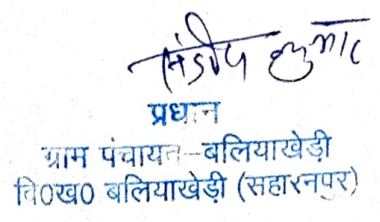 संदीप कुमार
प्रधान
ग्राम पंचायत-बलियाखेड़ी
वि0ख0 बलियाखेड़ी (सहारनपुर)